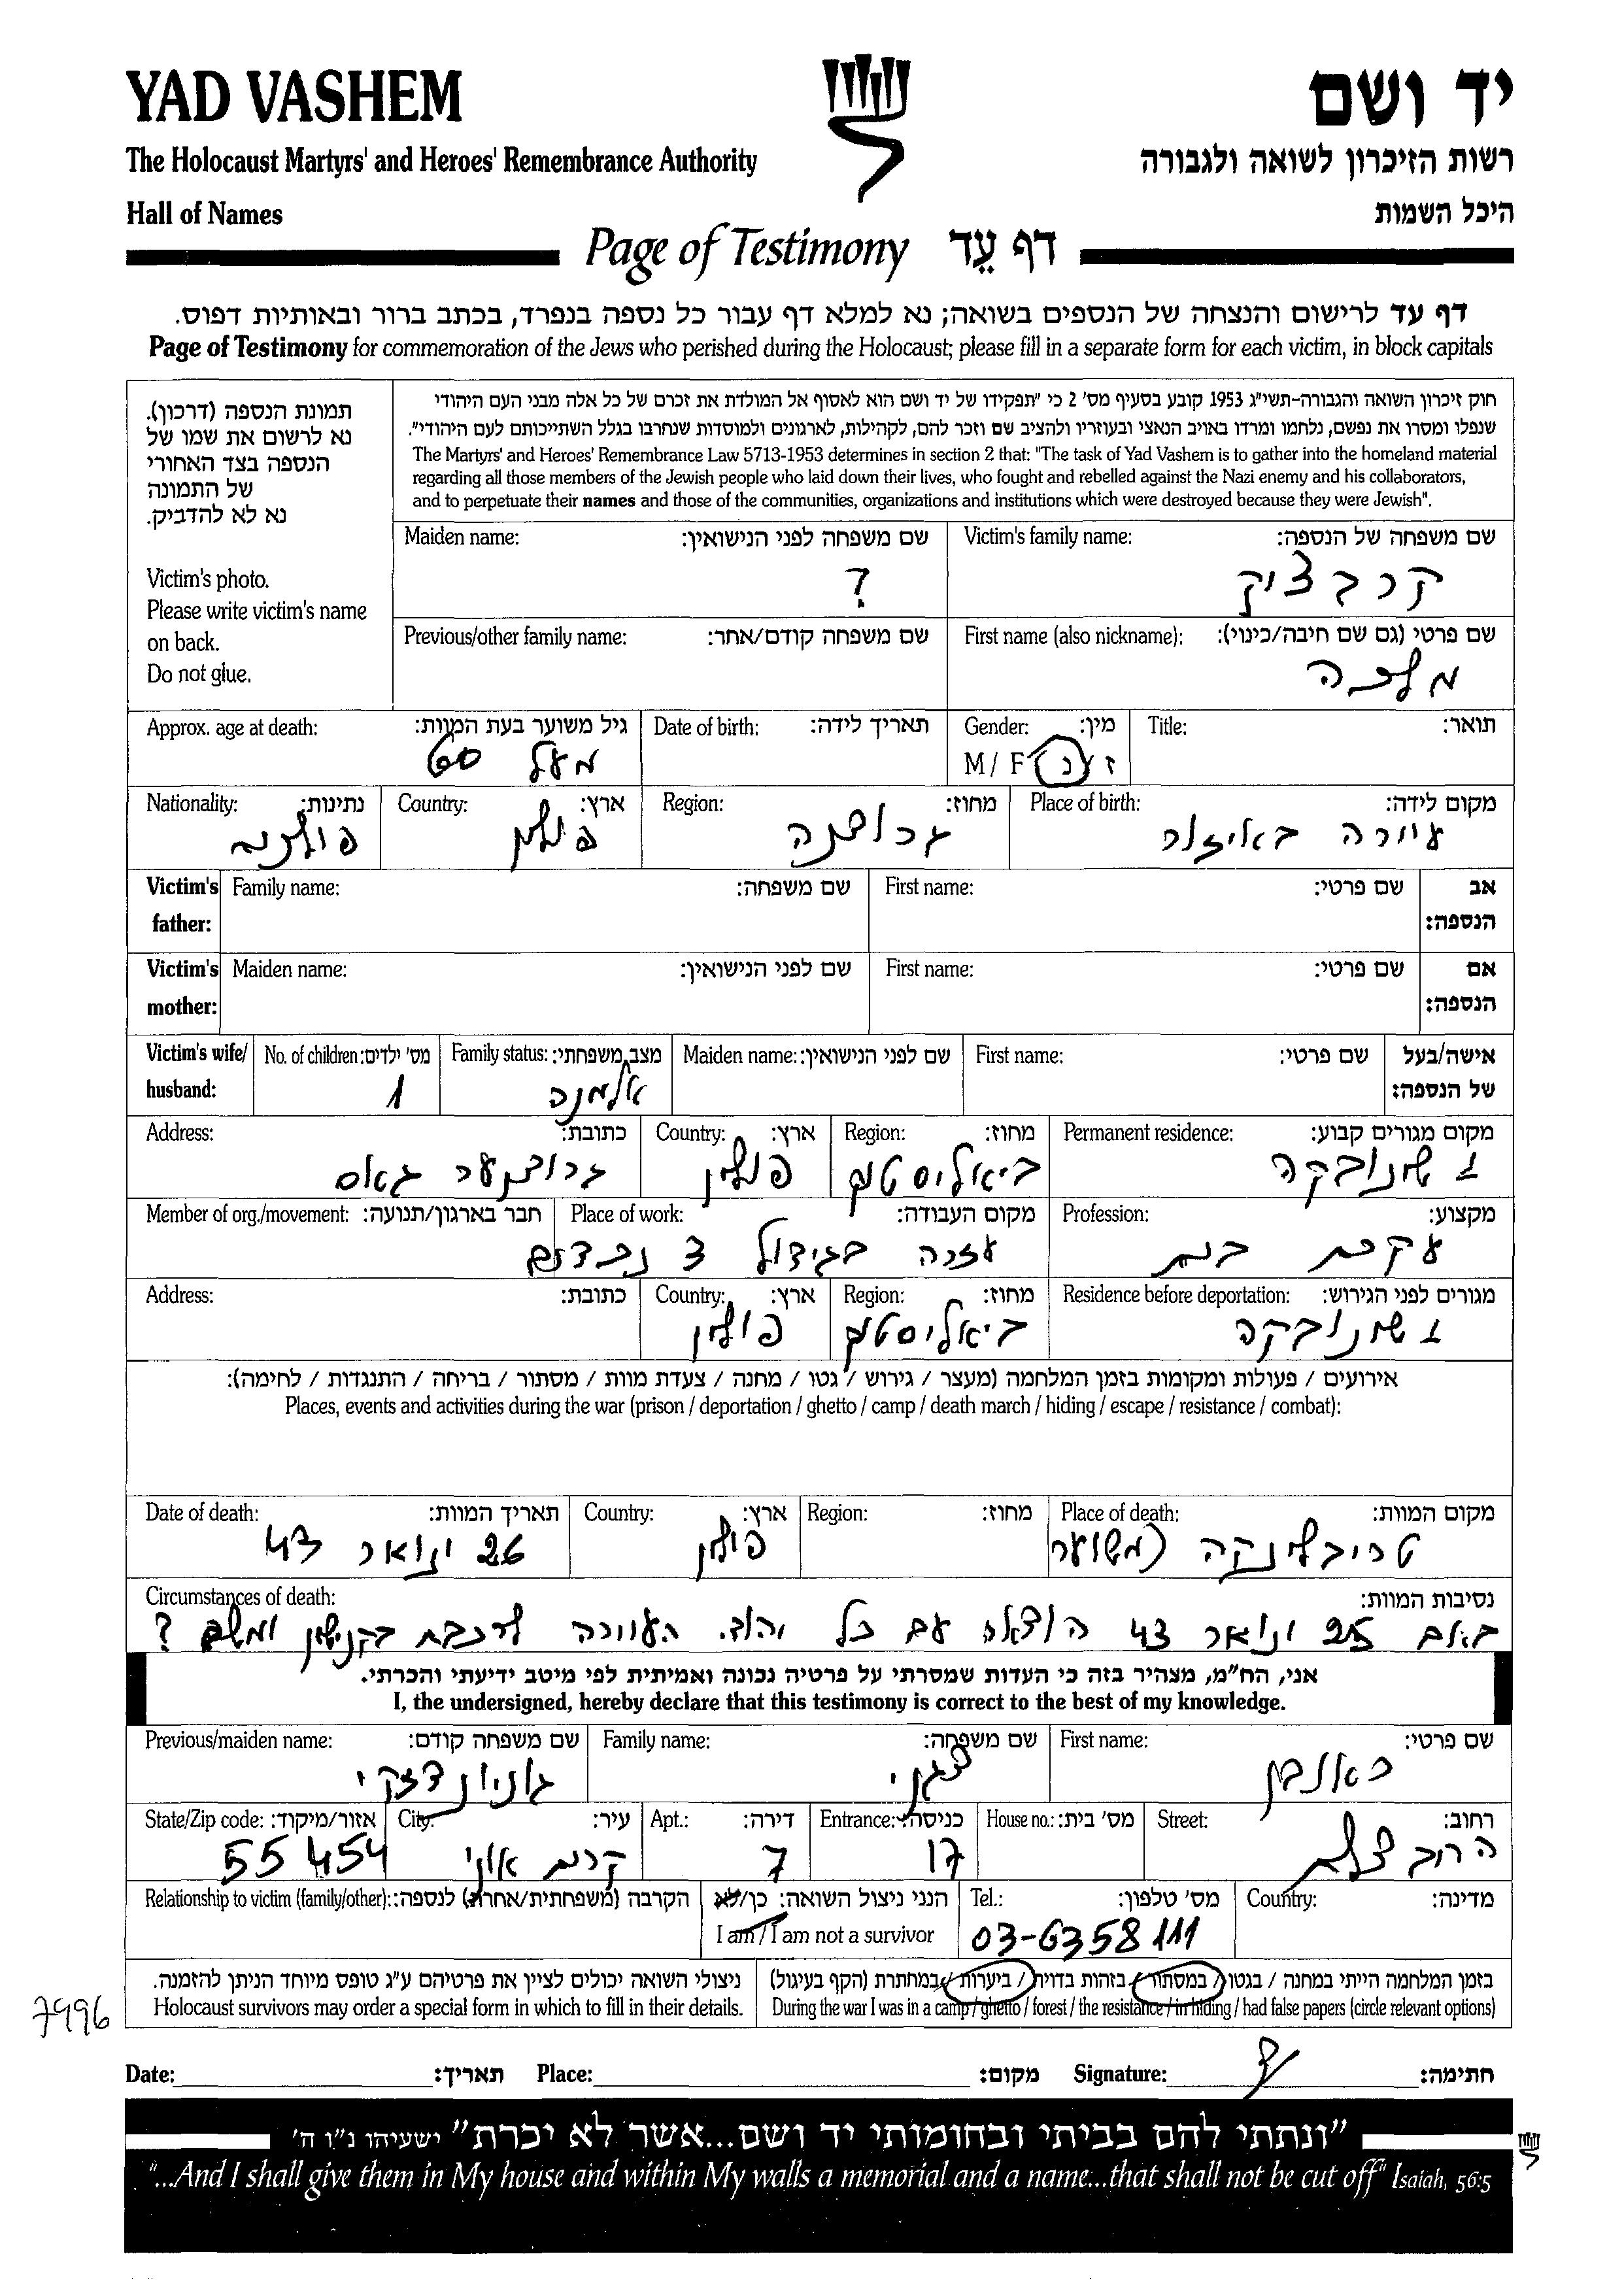 YAD VASHEM
יד ושם
The Holocaust Martyrs' and Heroes' Remembrance Authority
רשות הזיכרון לשואה ולגבורה
Hall of Names
היכל השמות
Page of Testimony דף עֵד
דף עד לרישום והנצחה של הנספים בשואה; נא למלא דף עבור כל נספה בנפרד, בכתב ברור ובאותיות דפוס.
Page of Testimony for commemoration of the Jews who perished during the Holocaust; please fill in a separate form for each victim, in block capitals
תמונת הנספה (דרכון).
נא לרשום את שמו של
הנספה בצד האחורי
של התמונה
נא לא להדביק.
Victim's photo.
Please write victim's name
on back.
Do not glue.
חוק זיכרון השואה והגבורה-תשי"ג 1953 קובע בסעיף מס' 2 כי "תפקידו של יד ושם הוא לאסוף אל המולדת את זכרם של כל אלה מבני העם היהודי
שנפלו ומסרו את נפשם, נלחמו ומרדו באויב הנאצי ובעוזריו ולהציב שם וזכר להם, לקהילות, לארגונים ולמוסדות שנחרבו בגלל השתייכותם לעם היהודי".
The Martyrs' and Heroes' Remembrance Law 5713-1953 determines in section 2 that: "The task of Yad Vashem is to gather into the homeland material
regarding all those members of the Jewish people who laid down their lives, who fought and rebelled against the Nazi enemy and his collaborators,
and to perpetuate their names and those of the communities, organizations and institutions which were destroyed because they were Jewish".
Victim's family name: שם משפחה של הנספה: Maiden name: שם משפחה לפני הנישואין:
קרבציק ?
First name (also nickname): שם פרטי (גם שם חיבה/כינוי): Previous/other family name: שם משפחה קודם/אחר:
מלכה
Title: תואר: Gender: מין: Date of birth: תאריך לידה: Approx. age at death: גיל משוער בעת המוות:
M / F ז / נ מעל 60
Place of birth: מקום לידה: Region: מחוז: Country: ארץ: Nationality: נתינות:
עיירה פולין
Victim's father: אב הנספה: First name: שם פרטי: Family name: שם משפחה:
Victim's mother: אם הנספה: First name: שם פרטי: Maiden name: שם לפני הנישואין:
Victim's wife/ husband: אישה/בעל של הנספה: First name: שם פרטי: Maiden name: שם לפני הנישואין: Family status: מצב משפחתי: No. of children: מס' ילדים:
אלמנה 1
Permanent residence: מקום מגורים קבוע: Region: מחוז: Country: ארץ: Address: כתובת:
ביאליסטוק פולין גרודנער גאס
Profession: מקצוע: Place of work: מקום העבודה: Member of org./movement: חבר בארגון/תנועה:
עקרת בית עזרה בגידול 3 נכדים
Residence before deportation: מגורים לפני הגירוש: Region: מחוז: Country: ארץ: Address: כתובת:
ביאליסטוק פולין
אירועים / פעולות ומקומות בזמן המלחמה (מעצר / גירוש / גטו / מחנה / צעדת מוות / מסתור / בריחה / התנגדות / לחימה):
Places, events and activities during the war (prison / deportation / ghetto / camp / death march / hiding / escape / resistance / combat):
Place of death: מקום המוות: Region: מחוז: Country: ארץ: Date of death: תאריך המוות:
טריבלינקה (משוער פולין 26 ינואר 43
Circumstances of death: נסיבות המוות:
25 ינואר 43 הוצאה עם כל יהוד. העיירה לרכבת ומשם ?
אני, הח"מ, מצהיר בזה כי העדות שמסרתי על פרטיה נכונה ואמיתית לפי מיטב ידיעתי והכרתי.
I, the undersigned, hereby declare that this testimony is correct to the best of my knowledge.
First name: שם פרטי: Family name: שם משפחה: Previous/maiden name: שם משפחה קודם:
ראובן גוניונדזקי
Street: רחוב: House no.: מס' בית: Entrance: כניסה: Apt.: דירה: City: עיר: State/Zip code: אזור/מיקוד:
הרוב צלם 17 7 קרית אונו 55454
Country: מדינה: Tel.: מס' טלפון: הנני ניצול השואה: כן/לא Relationship to victim (family/other): הקרבה (משפחתית/אחרת) לנספה:
03-6358111 I am / I am not a survivor
בזמן המלחמה הייתי במחנה / בגטו / במסתור / בזהות בדויה / ביערות / במחתרת (הקף בעיגול)
During the war I was in a camp / ghetto / forest / the resistance / in hiding / had false papers (circle relevant options)
ניצולי השואה יכולים לציין את פרטיהם ע"ג טופס מיוחד הניתן להזמנה.
Holocaust survivors may order a special form in which to fill in their details.
7996
Date: תאריך: Place: מקום: Signature: חתימה:
"ונתתי להם בביתי ובחומותי יד ושם...אשר לא יכרת" ישעיהו נ"ו ה'
"...And I shall give them in My house and within My walls a memorial and a name...that shall not be cut off" Isaiah, 56:5